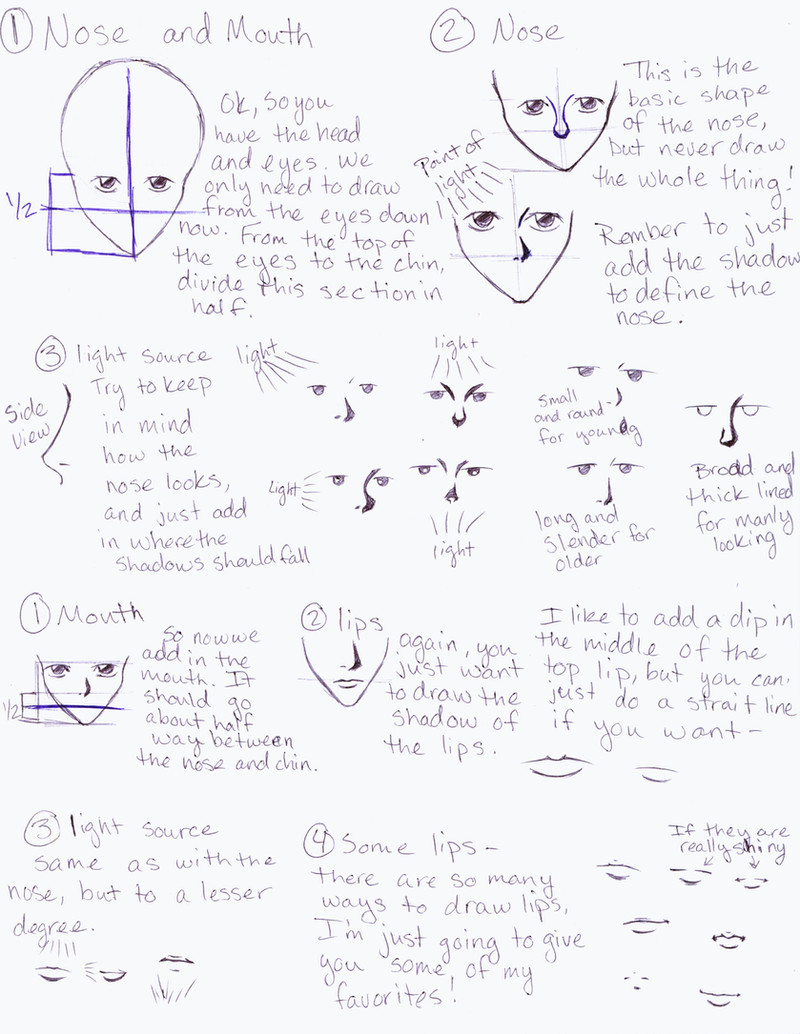 ① Nose and Mouth
Ok, so you
have the head
and eyes. We
only need to draw
from the eyes down
now. From the top of
the eyes to the chin,
divide this section in
half.
1/2
② Nose
This is the
basic shape
of the nose,
but never draw
the whole thing!
Point of
light
Rember to just
add the shadow
to define the
nose.
③ light source
Try to keep
in mind
how the
nose looks,
and just add
in where the
shadows should fall
Side
view
light
light
light
light
small
and round
for young
long and
slender for
older
Broad and
thick lined
for manly
looking
① Mouth
So now we
add in the
mouth. It
should go
about half
way between
the nose and chin.
1/2
② lips
again, you
just want
to draw the
shadow of
the lips.
I like to add a dip in
the middle of the
top lip, but you can
just do a strait line
if you want -
③ light source
same as with the
nose, but to a lesser
degree.
④ Some lips -
there are so many
ways to draw lips,
I'm just going to give
you some of my
favorites!
If they are
really shiny